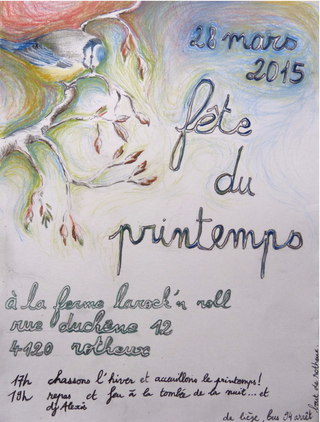 28 mars
2015
fête
du
printemps
à la ferme larock'n roll
rue duchêne 12
4120 rotheux
17h chassons l'hiver et accueillons le printemps!
18h repas et feu à la tombée de la nuit... et
dj Alexis
de liège, bus 94 arrêt